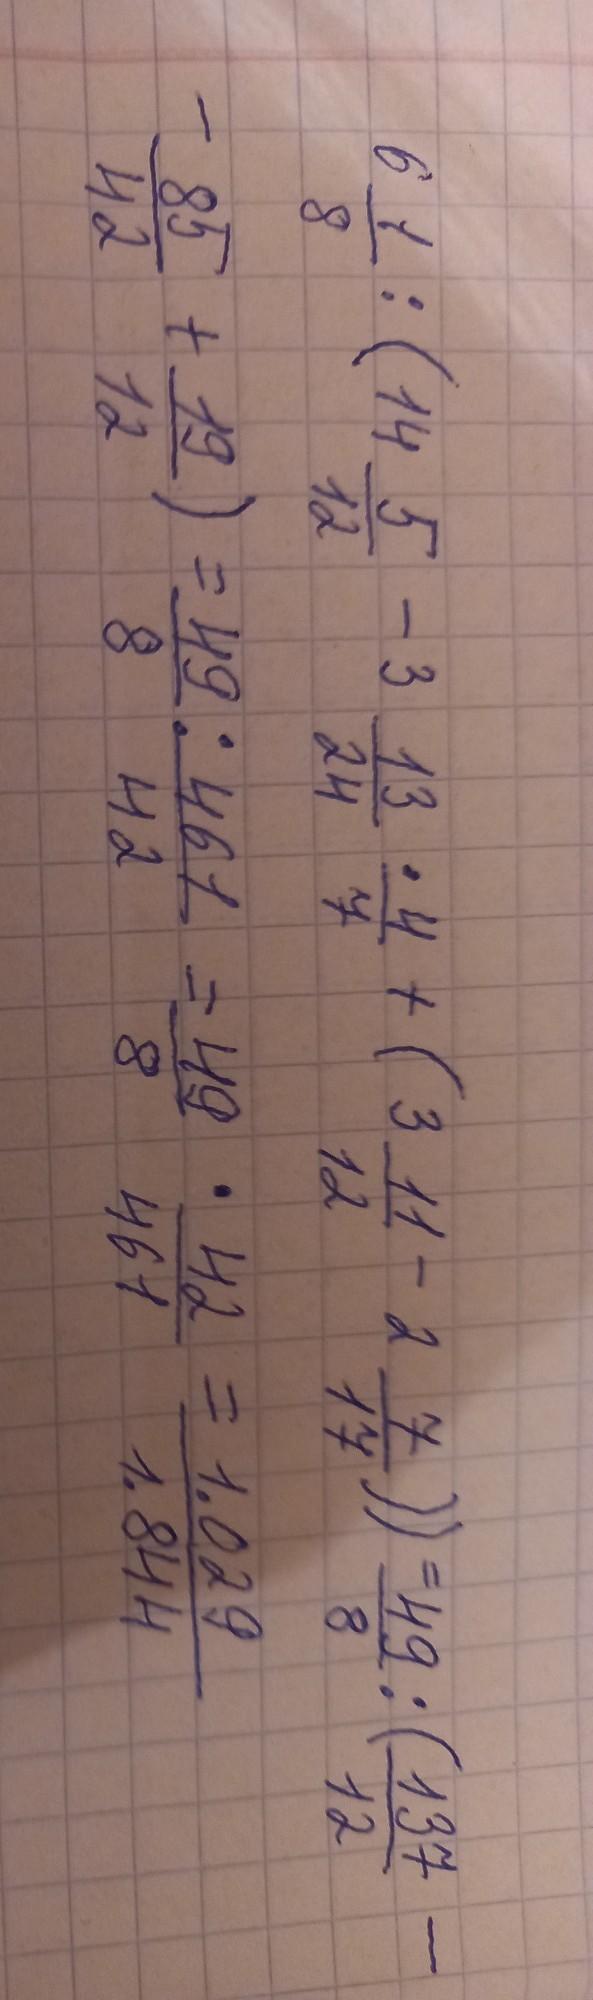 6 1/8 : (14 5/12 - 3 13/24 · 4/7 + (3 11/12 - 2 7/17)) = 49/8 : (137/12 -
- 85/42 + 19/12) = 49/8 : 461/42 = 49/8 · 42/461 = 1.029/1.844